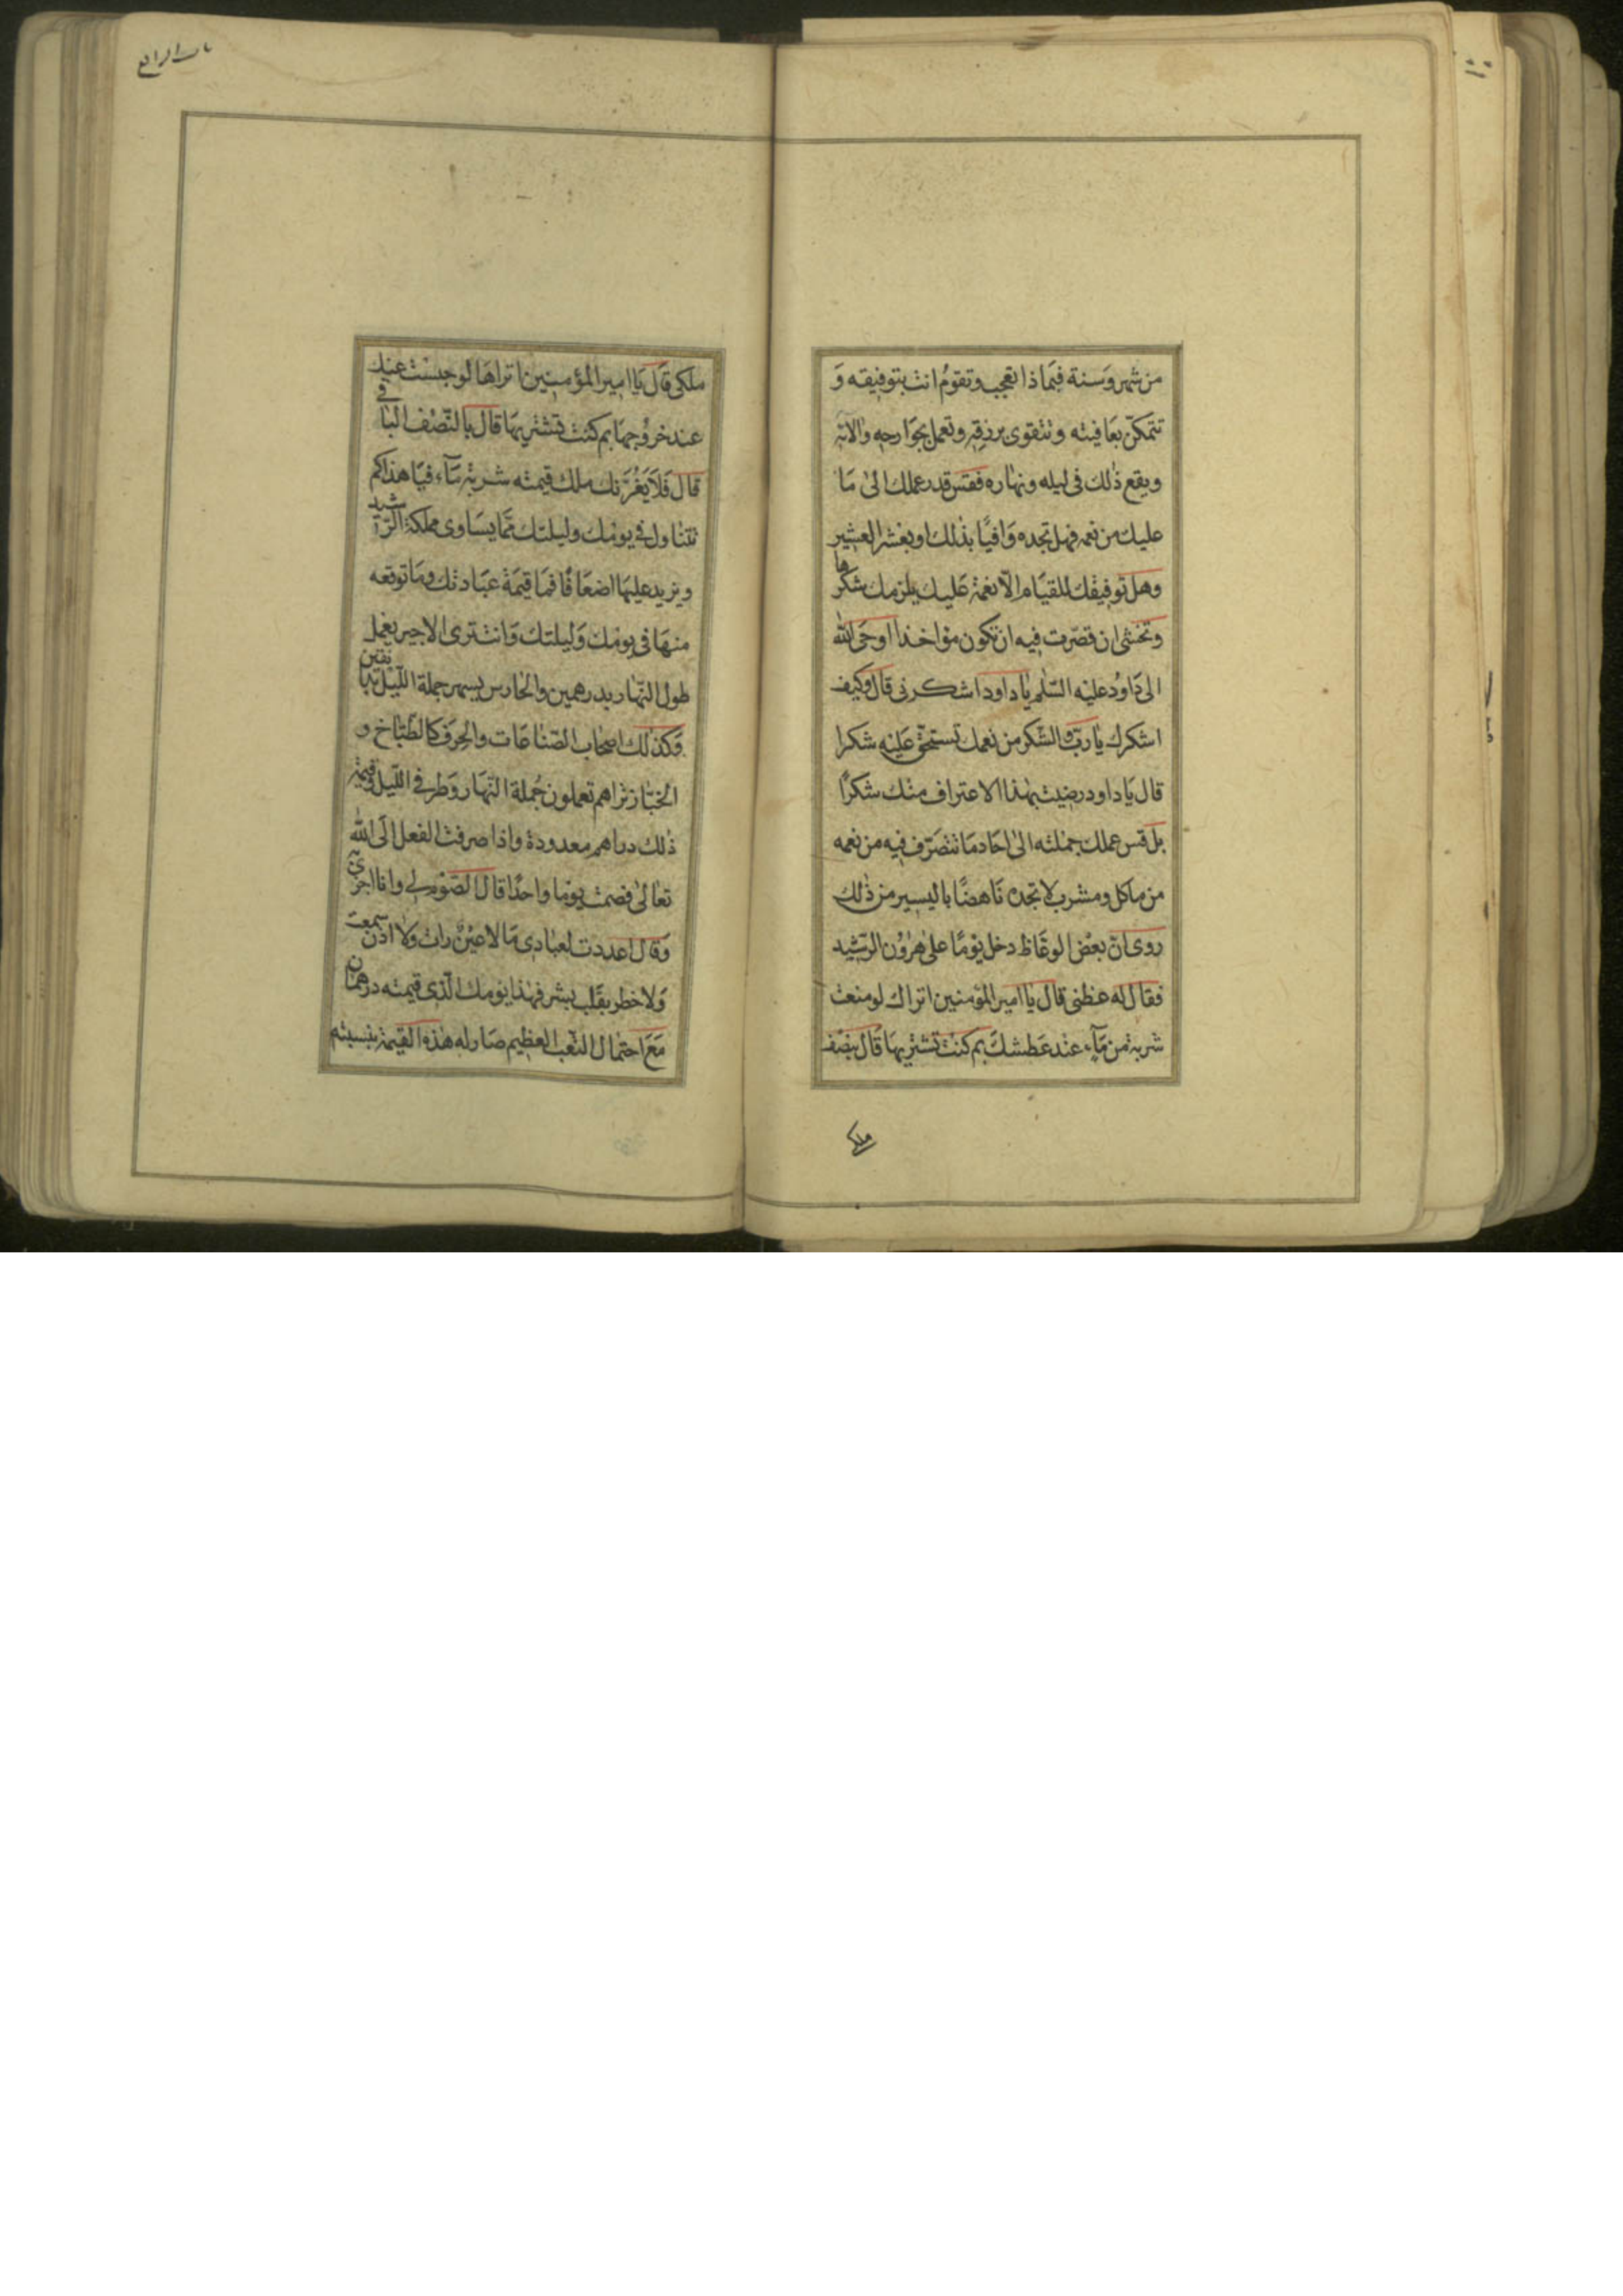 من شهر وسنة فيماذا تعجب وتقوم انت بتوفيقه و
تتمكن بعافيته وتتقوى برزقه وتعمل بجوارحه والاته
ويقع ذٰلك فى ليله ونهاره فقس قدر عملك الىٰ مَا
عليك من نعمه فهل تجده وَافيًا بذٰلك او بعشر العشير
وهل توفيقك للقيام الّا نعمة عَليك يلزمك شكرها
وتخشىٰ ان قصّرت فيه ان تكون مؤاخذا اوحَى الله
الىٰ دَاوُد عليْه السّلٰم يا داود اشكرنى قال وكيف
اشكرك يا ربّ والشّكر من نعمك تستحقّ عَليْه شكرا
قال يَا داود رضيت بهٰذا الاعتراف منك شكرًا
بل قس عملك جملته الىٰ احَاد مَا تتصَرّف فيه من نعمه
من ماكل ومشرب لا تجده نَاهضًا باليسير من ذٰلك
روى انّ بعْض الوعّاظ دخل يَوْمًا على هٰرُوْن الرّشيد
فقال له عظنى قال يَا امير المؤمنين اتراك لو منعت
شربة من مَآء عند عَطشكَ بم كنت تشتريهَا قال بنصْف
ملكى
ملكى قَال يَا امير المؤمنين اتراهَا لو حبسْت عنك
عند خروجهَا بم كنت تشتريهَا قال بالنّصْف الباقى
قال فَلَا يَغُرَّنك ملك قيمته شربة مَآء فيا هذا كم
تتناول فى يومك وليلتك ممّا يسَاوى مملكة الرّشيد
ويزيد عليهَا اضعَافًا فمَا قيمَة عبَادتك ومَا توقعه
منهَا فى يومك وَليلتك وَانت ترى الاجير يعمل
طول النّهار بدرهمين والحارس يسهر جملة اللّيل بدانقين
وَكذٰلك اصحَاب الصّناعَات والحِرَف كالطّبّاخ و
الخبّاز تراهم تعملون جُملة النّهَار وَطرفى اللّيل وقيمة
ذٰلك دراهم معدودة واذا صرفت الفعل الَى الله
تعالىٰ فصمت يومًا واحدًا قال الصّوْم لى وانا اجزى به
وَقال اعددت لعبادى مَا لا عَيْنٌ رات ولا اذن سمعت
وَلا خطر بقَلب بشر فهٰذا يومك الّذى قيمته درهمان
مَعَ احتمَال التّعَب العظيم صَار له هٰذه القيمة بنسبته